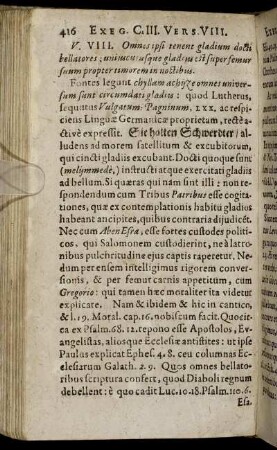 416 EXEG. C. III. VERS. VIII.
V. VIII. Omnes ipsi tenent gladium docti
bellatores; uniuscujusque gladius est super femur
suum propter timorem in noctibus.
Fontes legunt chyllam omnes univer-
sum sunt circumdati gladio: quod Lutherus,
sequutus Vulgatum, Pagninum, LXX, ac respi-
ciens Linguæ Germanicæ proprietum, rectè a-
ctivè expressit. Sie holten Schwerdter/al-
ludens ad morem satellitum & excubitorum,
qui cincti gladiis excubant. Docti quoque sunt
(melymmedé,) instructi atque exercitati gladiis
ad bellum. Si quæras qui nam sunt illi: non re-
spondendum cum Tribus Patribus esse cogita-
tiones, quæ ex contemplationis habitu gladiū
habeant ancipites, quibus contraria dijudicét.
Nec cum Aben Esra, esse fortes custodes politi-
cos, qui Salomonem custodierint, ne à latro-
nibus pulchritudine ejus captis raperetur. Ne-
dum per ensem intelligimus rigorem conver-
sionis, & per femur carnis appetitum, cum
Gregorio: qui tamen hæc moraliter ita videtur
explicate. Nam & ibidem & hîc in cantico,
& l. 19. Moral. cap. 16. nobiscum facit. Quo cir-
ca ex Psalm. 68. 12. repono esse Apostolos, Ev-
angelistas, aliosque Ecclesiæ antistites: ut ipse
Paulus explicat Ephes. 4. 8. ceu columnas Ec-
clesiarum Galath. 2. 9. Quos omnes bellato-
ribus scriptura confert, quod Diaboli regnum
debellent: è quo cadit Luc. 10. 18. Psalm. 110. 6.
Esa.